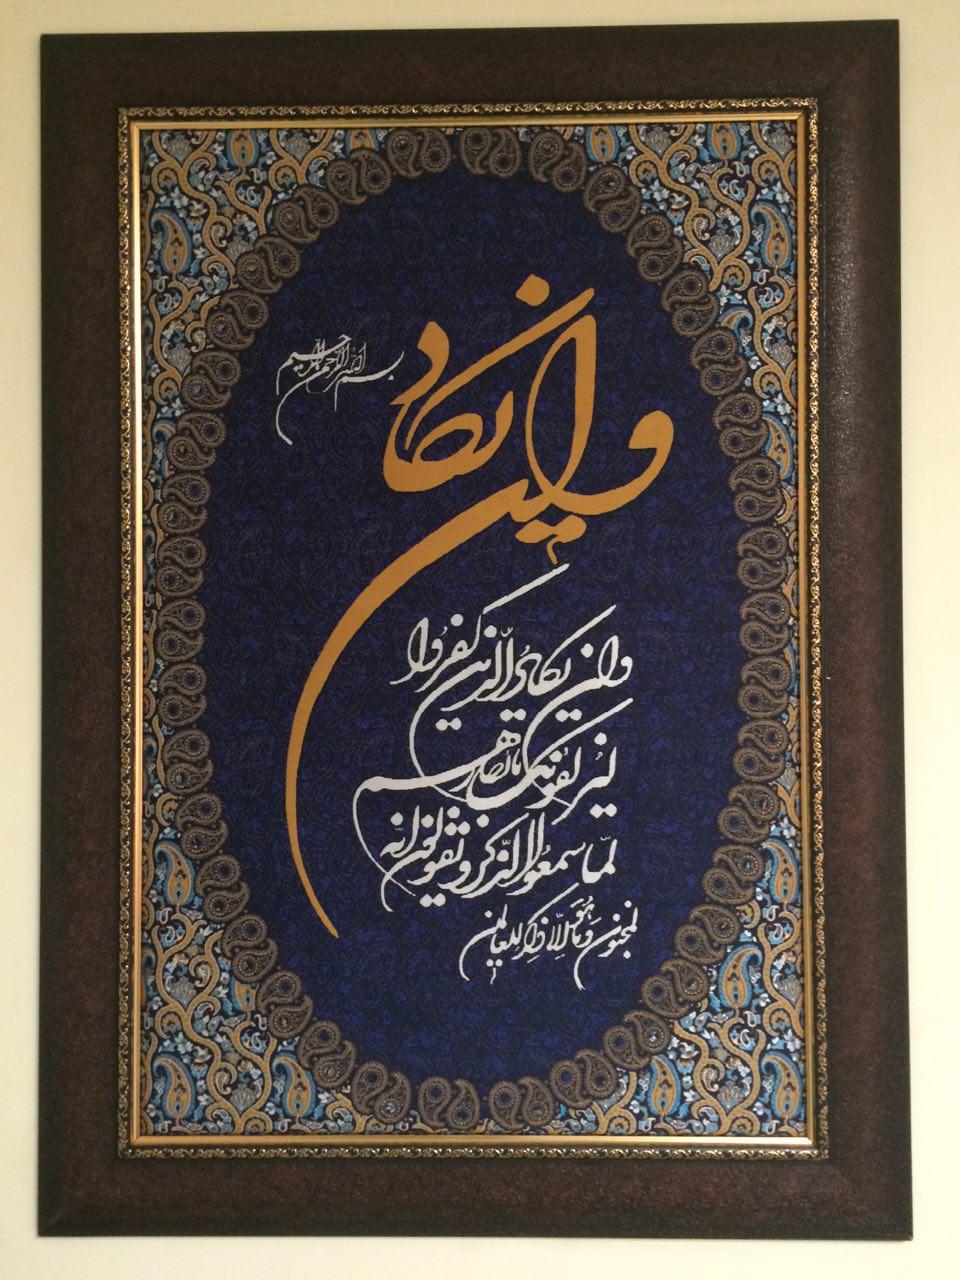 بسم الله الرحمن الرحیم
وان یکاد
وان یکاد الّذین کفروا
لیزلقونک بابصارهم
لمّا سمعوا الذّکر و یقولون انّه
لمجنون وَ ما هُوَ اِلّا ذِکر للعالمین